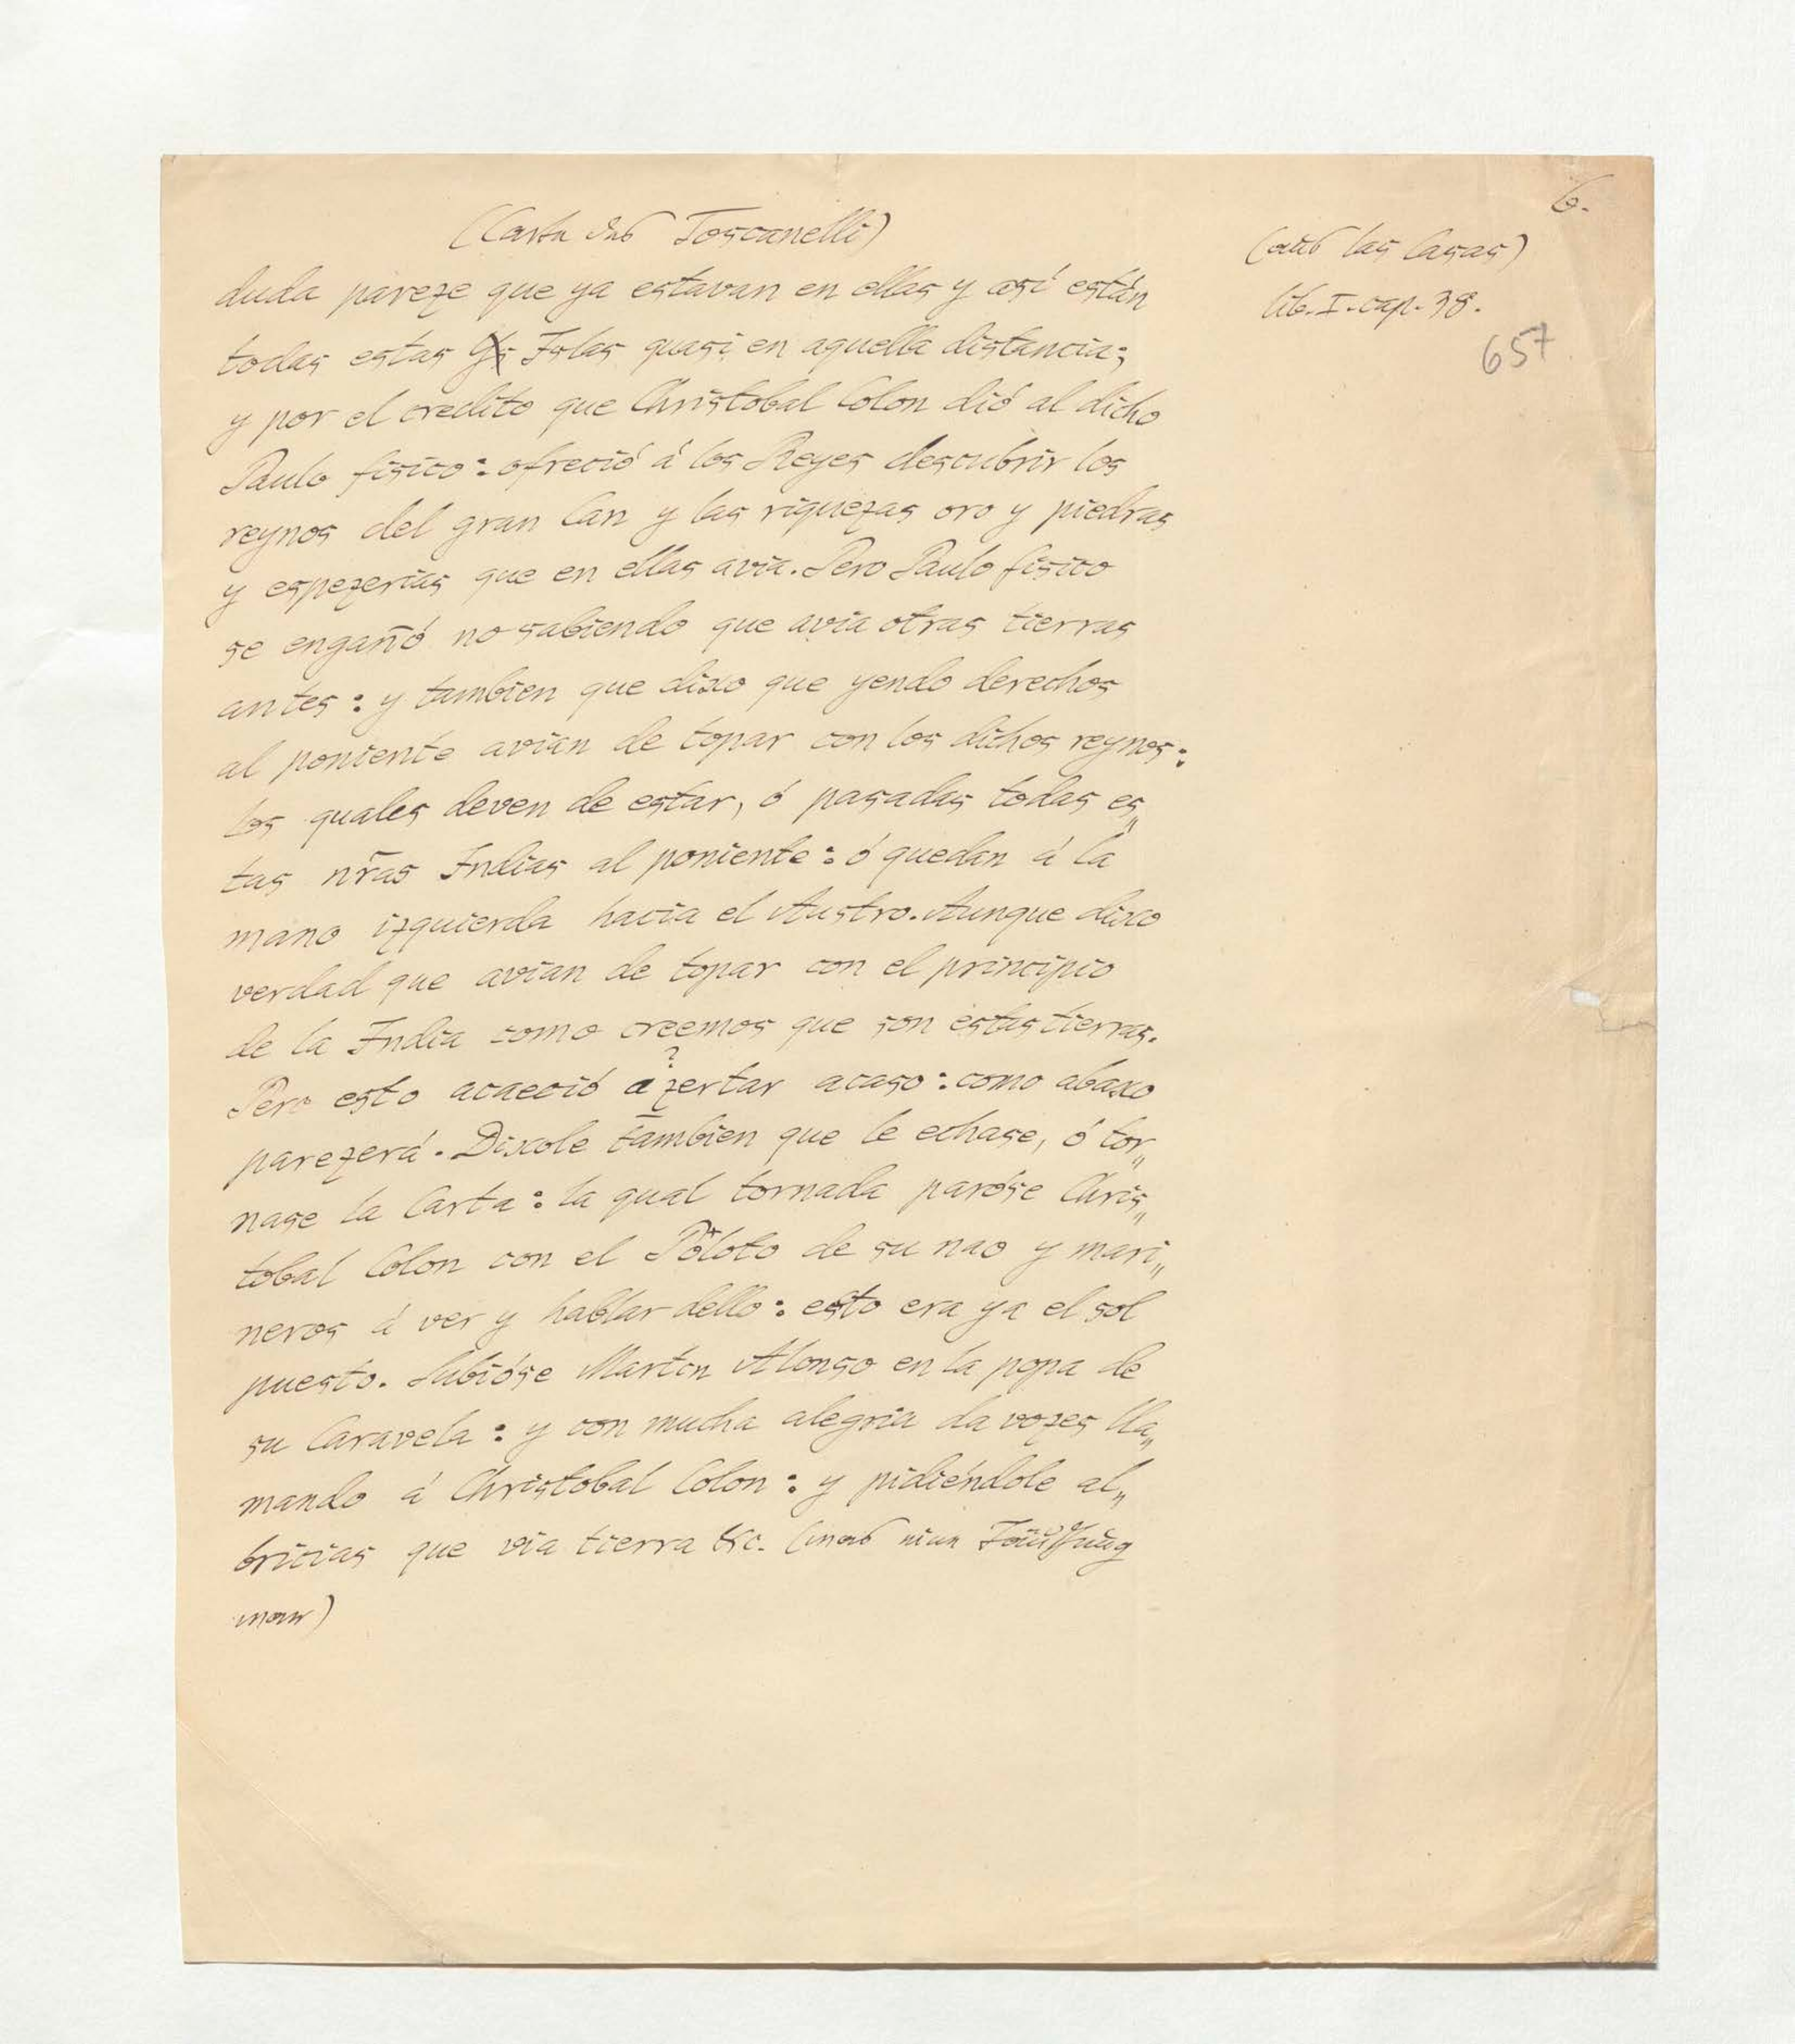 6.
(Carta des Toscanelli)
(aus las Casas)
lib. I. cap. 38.
657
duda pareze que ya estavan en ellas y así están
todas estas Islas quasi en aquella distancia;
y por el credito que Christobal Colon dió al dicho
Paulo fisico: ofreció á los Reyes descubrir los
reynos del gran Can y las riquezas oro y piedras
y espezerias que en ellas avia. Pero Paulo fisico
se engañó no sabiendo que avia otras tierras
antes: y tambien que dixo que yendo derechos
al poniente avian de topar con los dichos reynos:
los quales deven de estar, ó pasadas todas es„
tas nr̃as Indias al poniente: ó quedan á la
mano izquierda hacia el Austro. Aunque dixo
verdad que avian de topar con el principio
de la India como creemos que son estas tierras.
Pero esto acaeció azertar acaso: como abaxo
?
parezerá. Dixole tambien que le echase, ó tor„
nase la Carta: la qual tornada paróse Chris„
tobal Colon con el Piloto de su nao y mari„
neros á ver y hablar dello: esto era ya el sol
puesto. Subióse Martin Alonso en la popa de
su Caravela: y con mucha alegria da vozes lla„
mando á Christobal Colon: y pidiéndole al„
bricias que via tierra &c. (was nur
war)